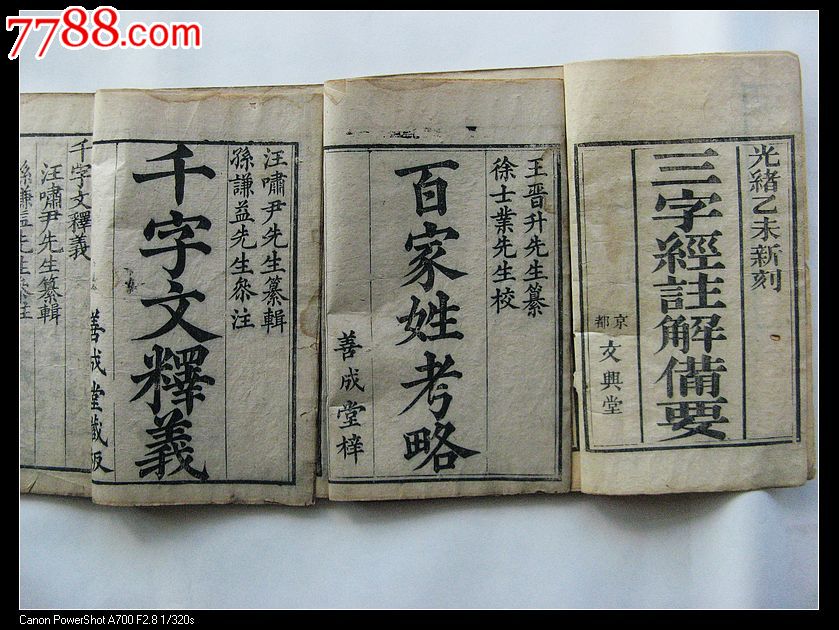 7788.com
光緒乙未新刻
三字經註解備要
京都
文興堂
王晋升先生纂
徐士業先生校
百家姓考略
善成堂梓
汪嘯尹先生纂輯
孫謙益先生叅注
千字文釋義
善成堂藏板
千字文釋義
汪嘯尹先生纂輯
孫謙益先生叅注
Canon PowerShot A700 F2.8 1/320s